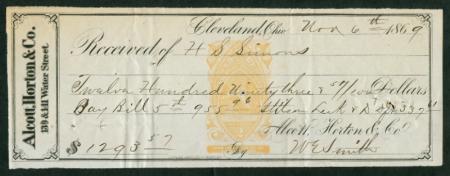 Alcott, Horton & Co.
139 & 141 Water Street.
Cleveland, Ohio Nov 6th 1869
Received of H B Simons
Twelve Hundred Ninty three & 57/100 Dollars
Pay Bill 5th 955 96 & 337 61
Alcott, Horton & Co
$ 1293 57 By W E Smith